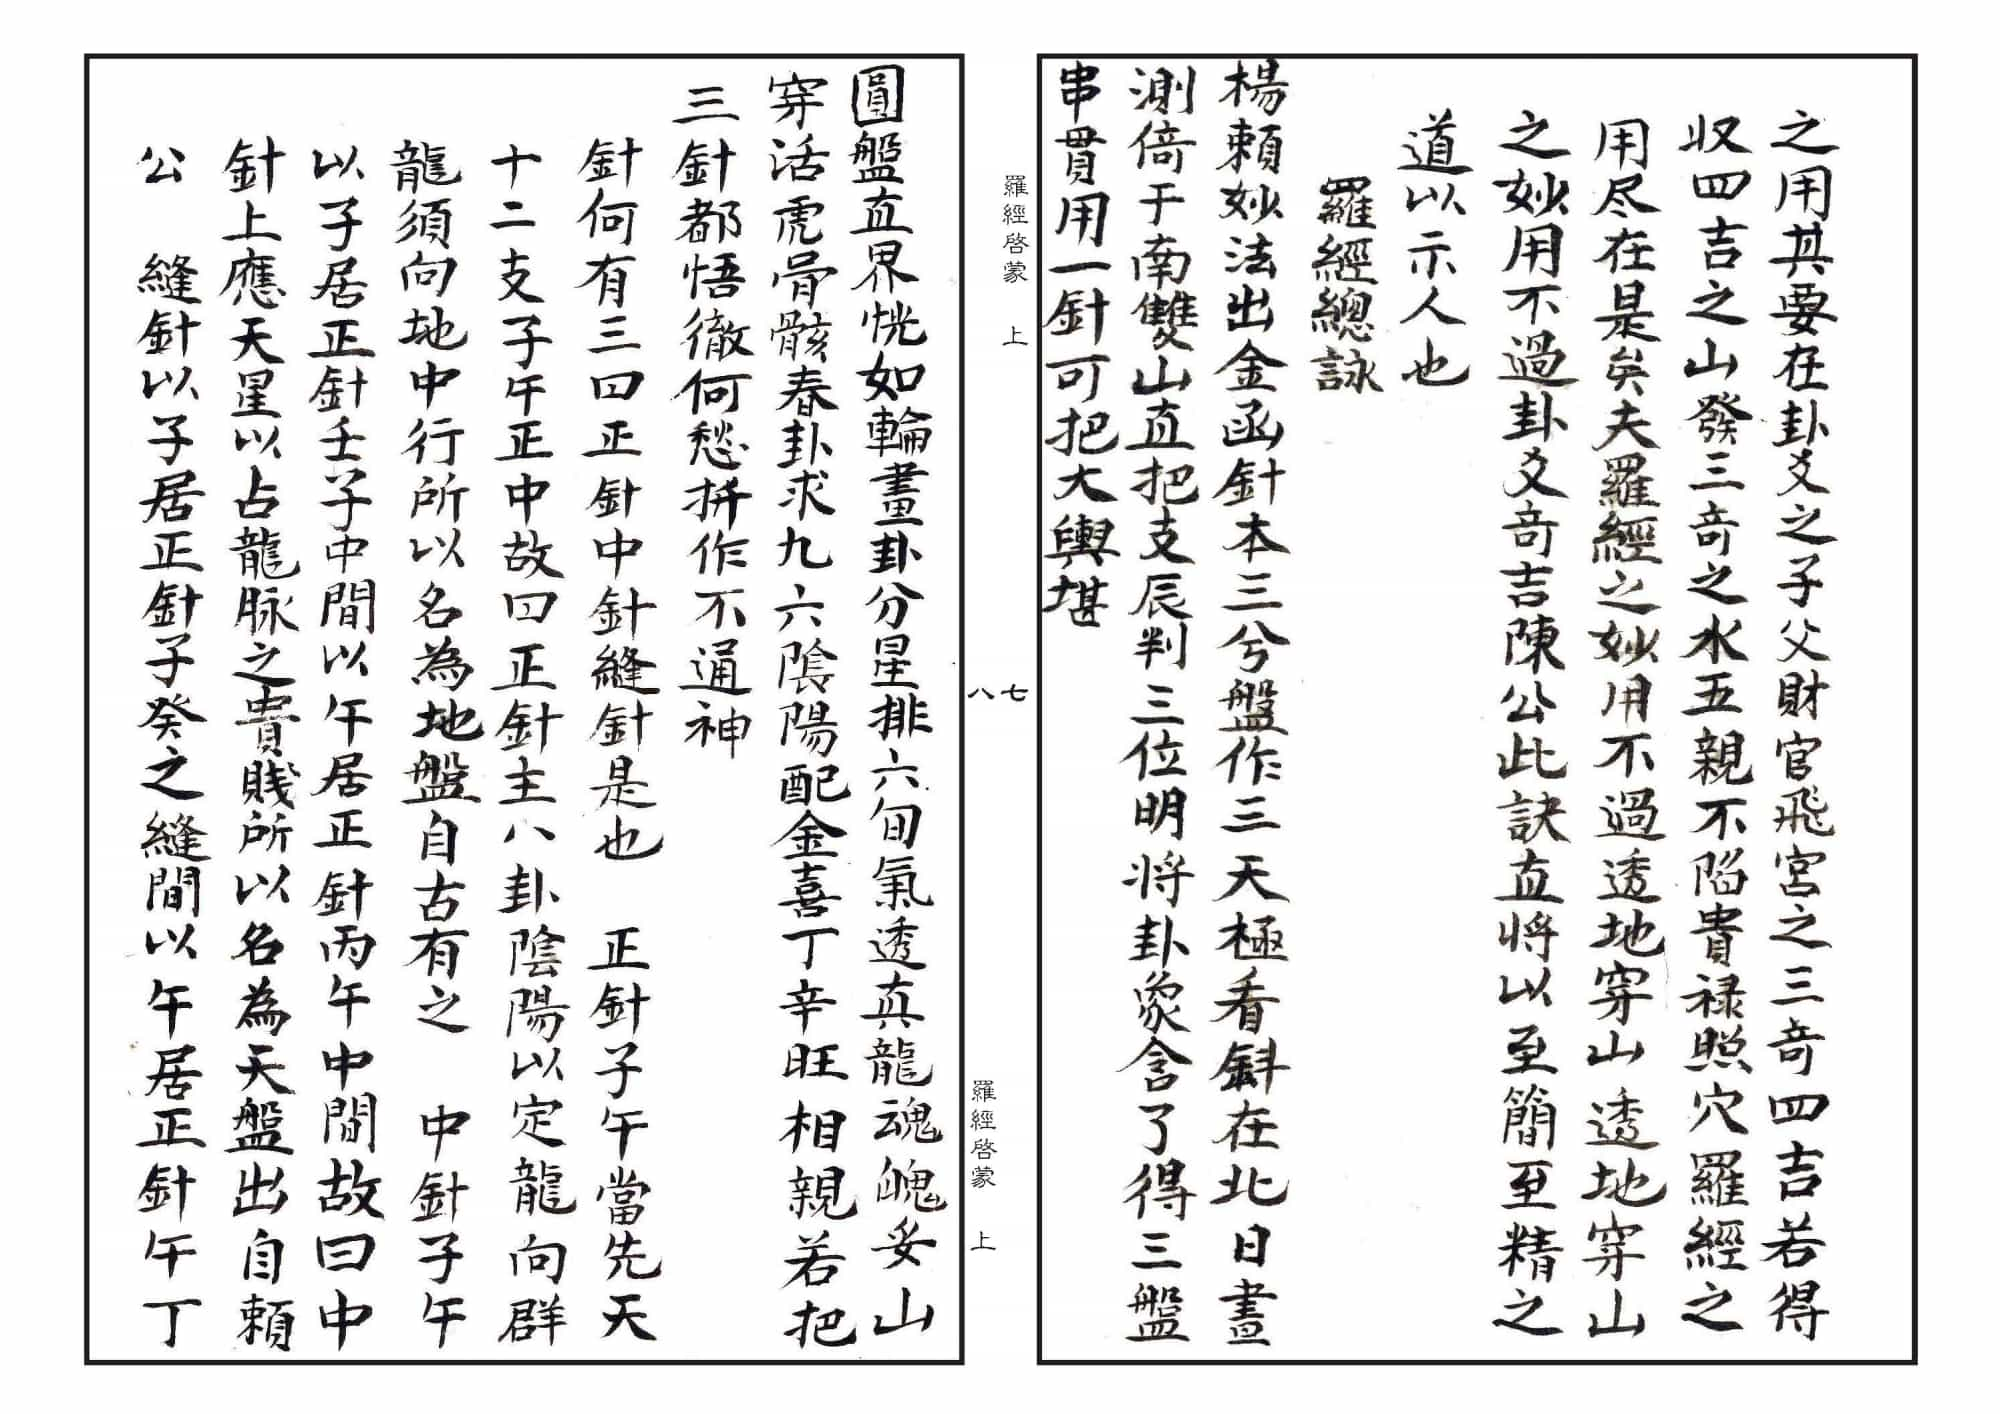 之用其要在卦爻之子父財官飛宮之三奇四吉若得
収四吉之山發三奇之水五親不陷貴祿照穴羅經之
用尽在是矣夫羅經之妙用不過透地穿山透地穿山
之妙用不過卦爻奇吉陳公此訣直将以至簡至精之
道以示人也
羅經總詠
楊頼妙法出金函針本三兮盤作三天極看斜在北日晝
測倚于南雙山直把支辰判三位明将卦象含了得三盤
串貫用一針可把大輿堪
羅經啓蒙 上
七
八
羅經啓蒙 上
圓盤直界恍如輪畫卦分星排六旬氣透真龍魂魄妥山
穿活虎骨骸春卦求九六陰陽配金喜丁辛旺相親若把
三針都悟徹何愁拼作不通神
針何有三曰正針中針縫針是也 正針子午當先天
十二支子午正中故曰正針主八卦陰陽以定龍向群
龍須向地中行所以名為地盤自古有之 中針子午
以子居正針壬子中間以午居正針丙午中間故曰中
針上應天星以占龍脉之貴賤所以名為天盤出自頼
公 縫針以子居正針子癸之縫間以午居正針午丁